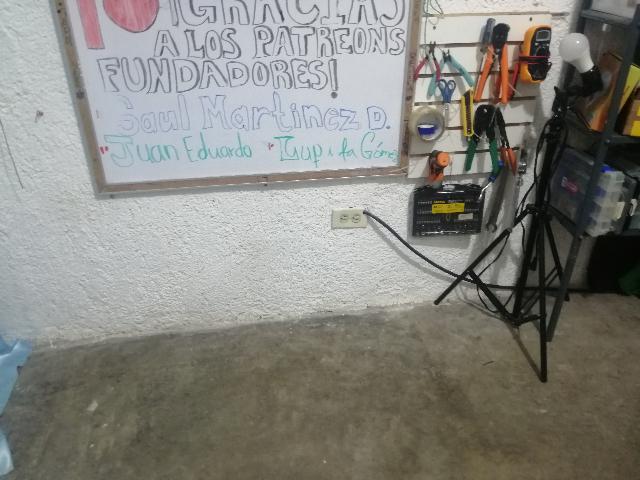 ¡GRACIAS
A LOS PATREONS
FUNDADORES!
Saul Martinez D.
Juan Eduardo Lupita Góme